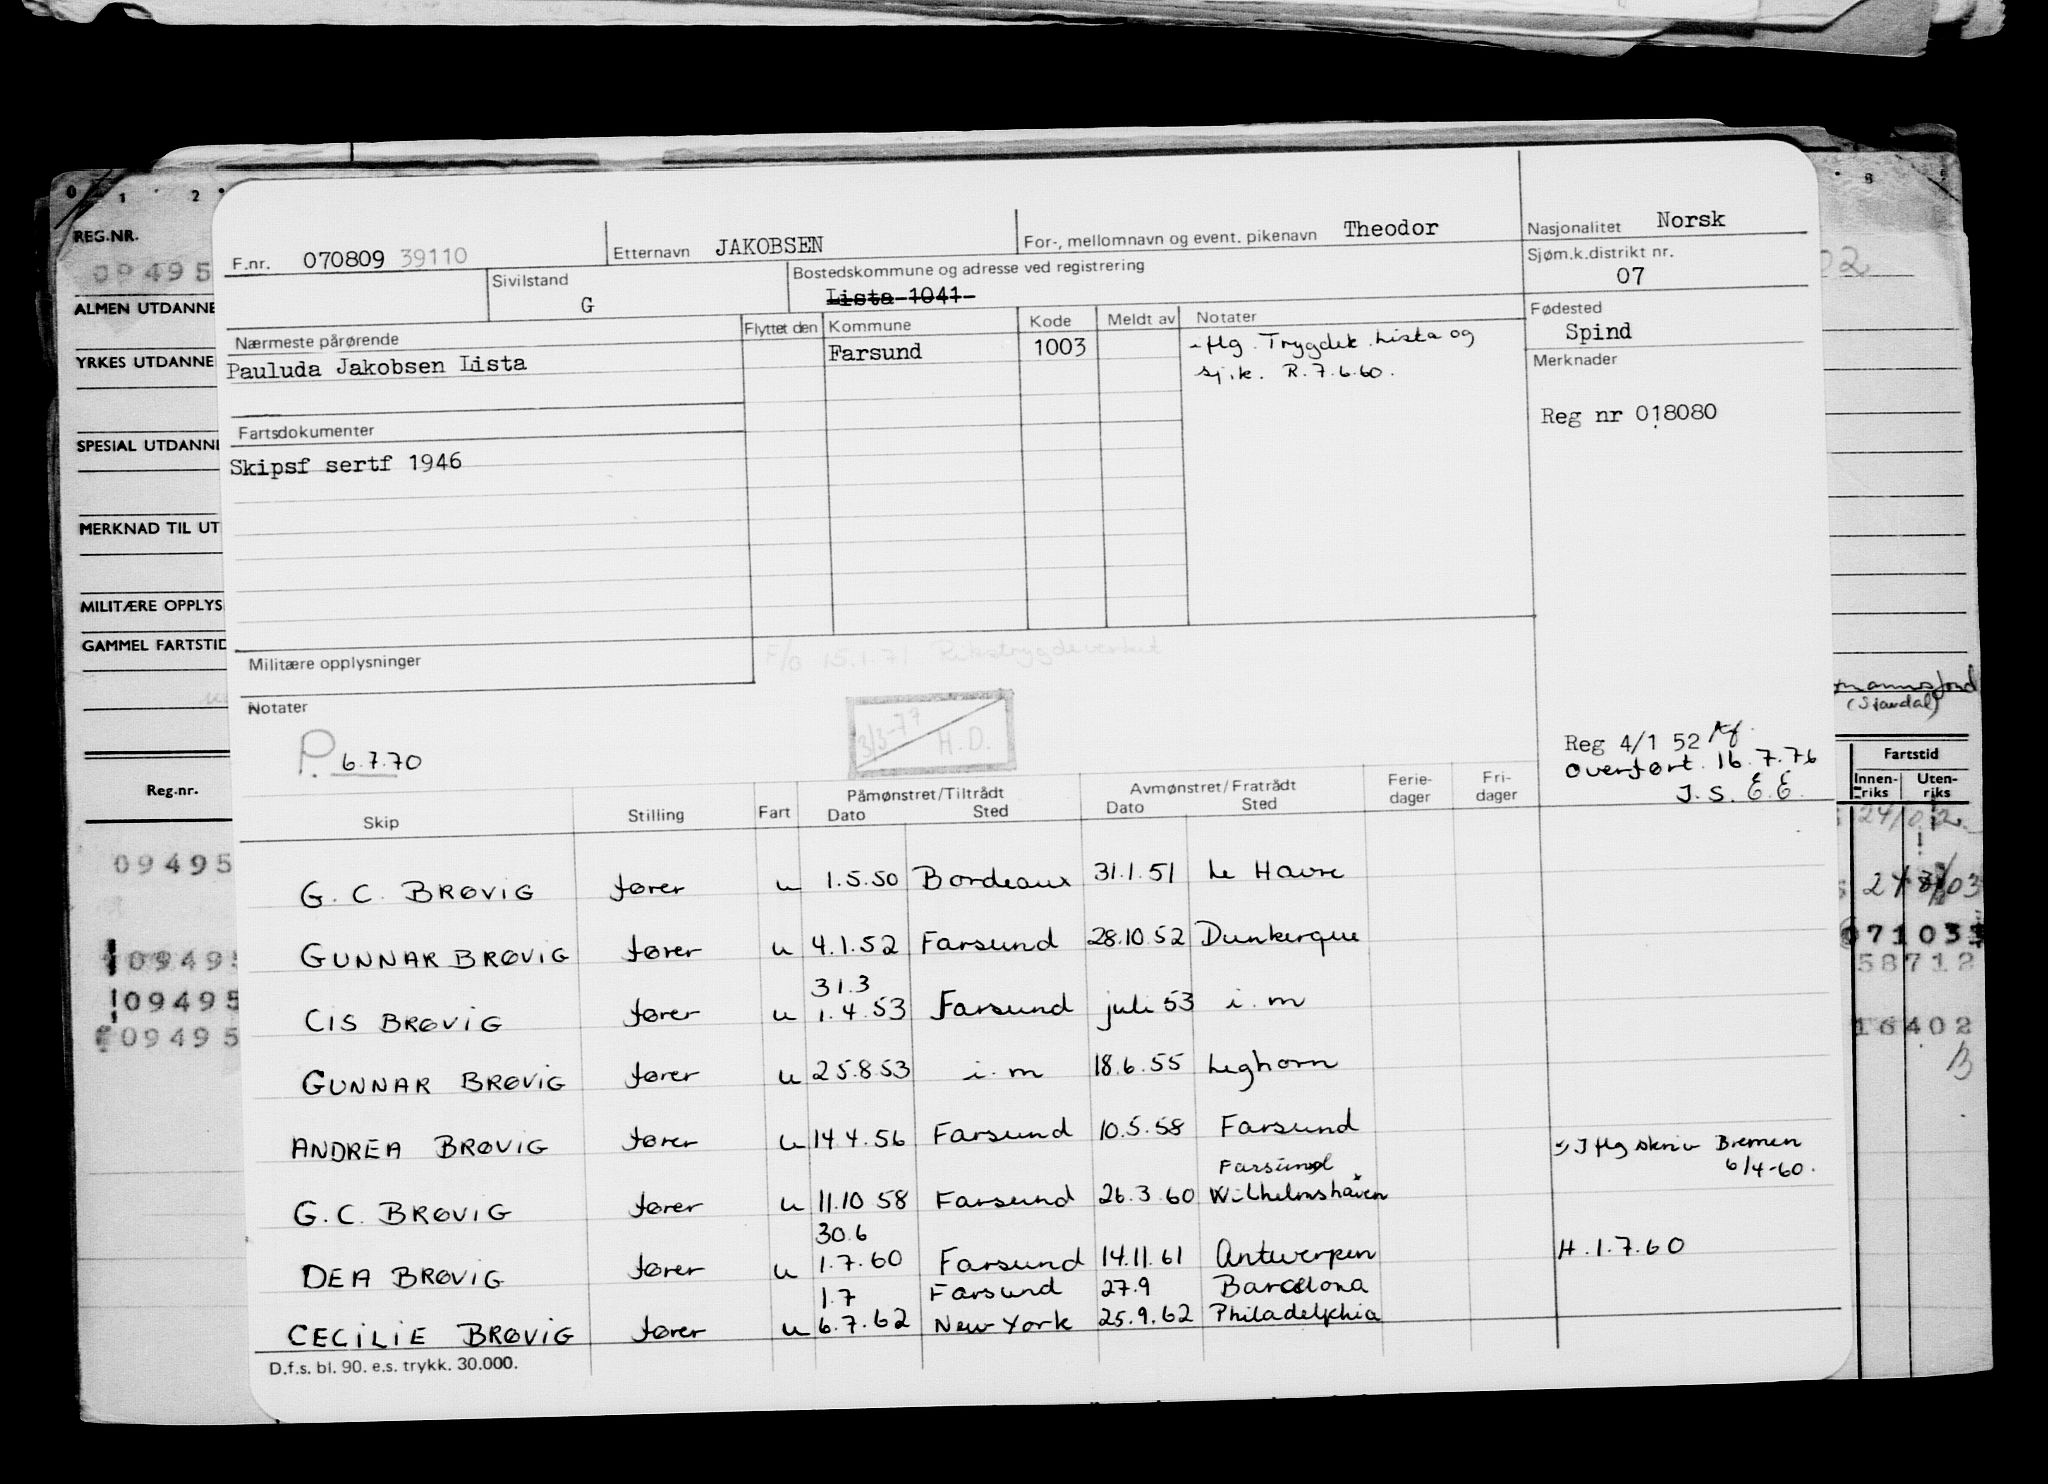 0 1 2 8
REG.NR. 09495
ALMEN UTDANNE
YRKES UTDANNE
SPESIAL UTDANNE
MERKNAD TIL UT
MILITÆRE OPPLYS
GAMMEL FARTSTID
Reg.nr.
09495
09495
09495
09495
F.nr. 070809 39110 Etternavn JAKOBSEN For-, mellomnavn og event. pikenavn Theodor Nasjonalitet Norsk
Sivilstand G Bostedskommune og adresse ved registrering Lista 1041 Sjøm.k.distrikt nr. 07
Nærmeste pårørende Flyttet den Kommune Kode Meldt av Notater Fødested Spind
Pauluda Jakobsen Lista Farsund 1003 - flg. Trygdek. Lista og
sj.k. R. 7.6.60.
Merknader
Reg nr 018080
Fartsdokumenter
Skipsf sertf 1946
Militære opplysninger
F/o 15.1.71 Rikstrygdeverket
Notater
P. 6.7.70
3/3-77 H.D.
Reg 4/1 52
Overført. 16.7.76
J.S. E.E.
Skip Stilling Fart Påmønstret/Tiltrådt Dato Sted Avmønstret/Fratrådt Dato Sted Ferie-dager Fri-dager
G. C. BRØVIG fører u 1.5.50 Bordeaux 31.1.51 Le Havre
GUNNAR BRØVIG fører u 4.1.52 Farsund 28.10.52 Dunkerque
31.3
CIS BRØVIG fører u 1.4.53 Farsund juli 53 i.m
GUNNAR BRØVIG fører u 25.8.53 i.m 18.6.55 Leghorn
ANDREA BRØVIG fører u 14.4.56 Farsund 10.5.58 Farsund
Farsund J flg skriv Bremen
6/4-60.
G.C. BRØVIG fører u 11.10 58 Farsund 26.3.60 Wilhelmshaven
30.6
DEA BRØVIG fører u 1.7.60 Farsund 14.11.61 Antwerpen H.1.7.60
1.7 Farsund 27.9 Barcelona
CECILIE BRØVIG fører u 6.7.62 New York 25.9.62 Philadelphia
D.f.s. bl. 90. e.s. trykk. 30.000.
02
(Sjøvdal)
Fartstid
Innen-riks Uten-riks
24/02
071033
58712
16402